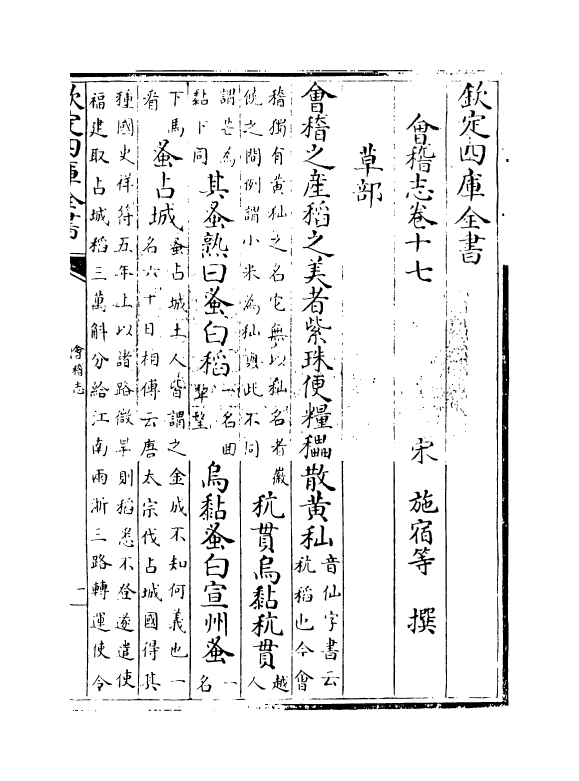 欽定四庫全書
會稽志卷十七 宋 施宿等 撰
草部
會稽之產稻之美者紫珠便糧散黃秈音仙字書云秔稻也今會
稽獨有黃秈之名它無以秈名者徽饒之間例謂小米為秈與此不同秔貫烏黏秔貫越人
謂芒為黏下同其蚤熟曰蚤白稻一名曲犂墅烏黏蚤白宣州蚤一名
下馬看蚤占城蚤占城土人皆謂之金成不知何義也一名六十日相傳云唐太宗伐占城國得其
種國史祥符五年上以諸路微旱則稻悉不登遂遣使福建取占城稻三萬斛分給江南兩淅三路轉運使令
欽定四庫全書
會稽志
一